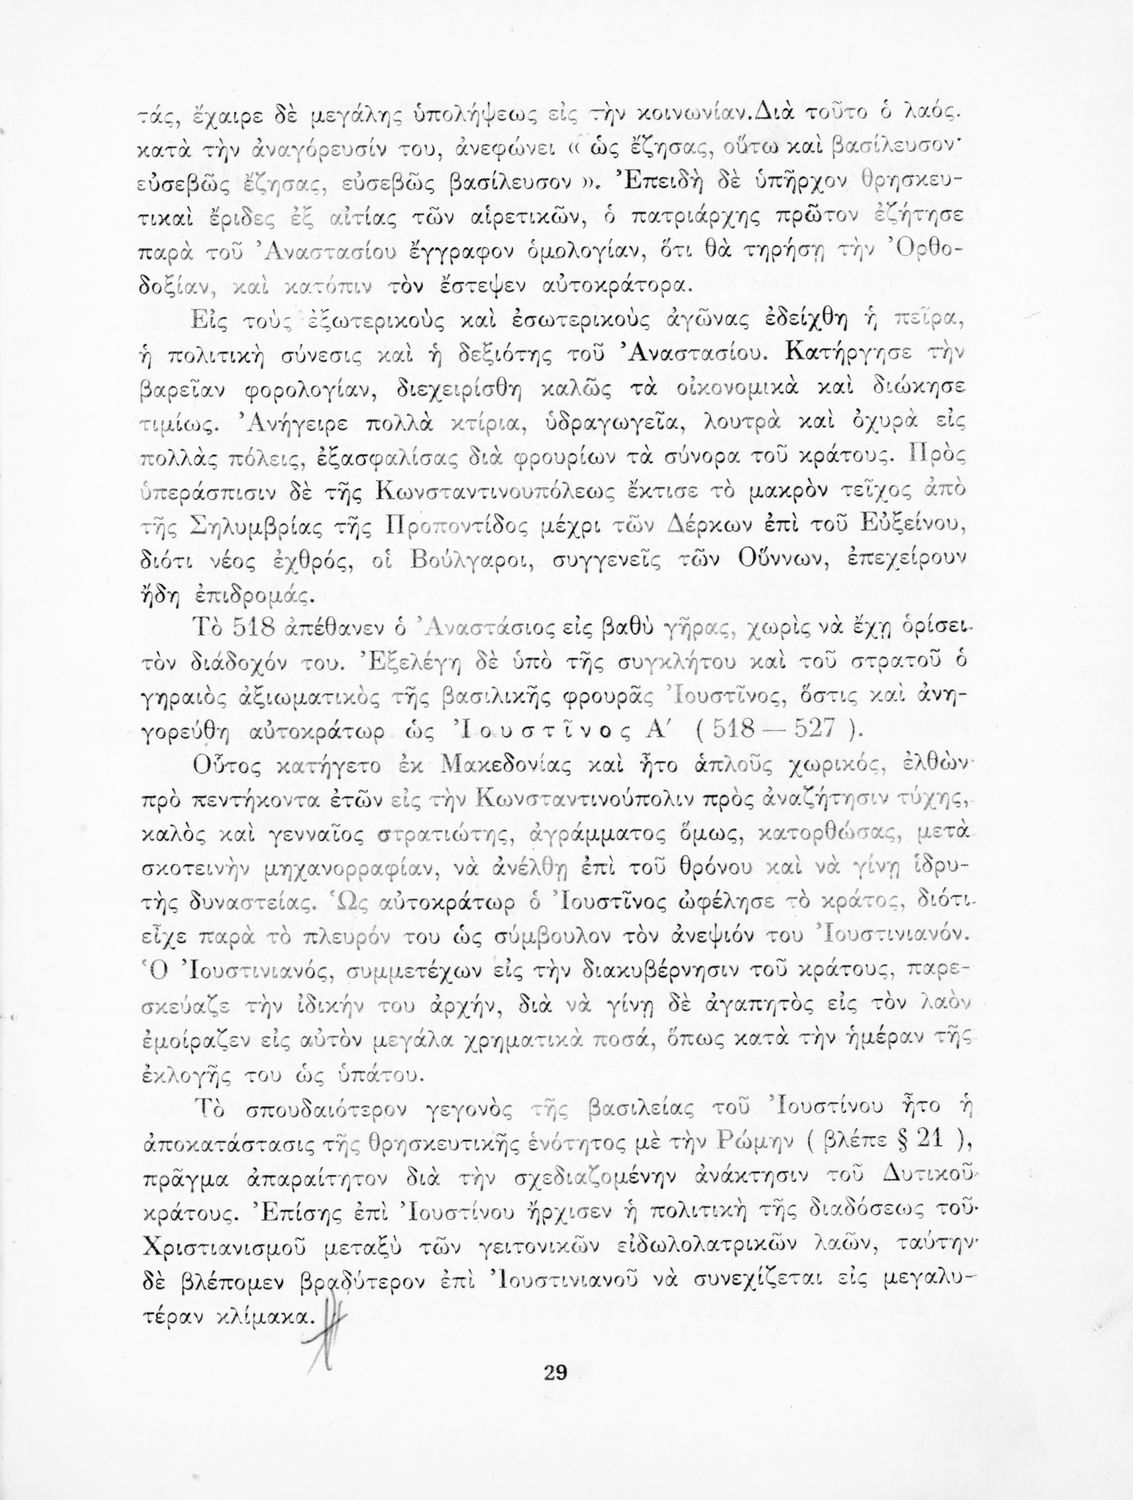 τάς, ἔχαιρε δὲ μεγάλης ὑπολήψεως εἰς τὴν κοινωνίαν.Διὰ τοῦτο ὁ λαός.
κατὰ τὴν ἀναγόρευσίν του, ἀνεφώνει « ὡς ἔζησας, οὕτω καὶ βασίλευσον·
εὐσεβῶς ἔζησας, εὐσεβῶς βασίλευσον ». Ἐπειδὴ δὲ ὑπῆρχον θρησκευ-
τικαὶ ἔριδες ἐξ αἰτίας τῶν αἱρετικῶν, ὁ πατριάρχης πρῶτον ἐζήτησε
παρὰ τοῦ Ἀναστασίου ἔγγραφον ὁμολογίαν, ὅτι θὰ τηρήσῃ τὴν Ὀρθο-
δοξίαν, καὶ κατόπιν τὸν ἔστεψεν αὐτοκράτορα.
Εἰς τοὺς ἐξωτερικοὺς καὶ ἐσωτερικοὺς ἀγῶνας ἐδείχθη ἡ πεῖρα,
ἡ πολιτικὴ σύνεσις καὶ ἡ δεξιότης τοῦ Ἀναστασίου. Κατήργησε τὴν
βαρεῖαν φορολογίαν, διεχειρίσθη καλῶς τὰ οἰκονομικὰ καὶ διώκησε
τιμίως. Ἀνήγειρε πολλὰ κτίρια, ὑδραγωγεῖα, λουτρὰ καὶ ὀχυρὰ εἰς
πολλὰς πόλεις, ἐξασφαλίσας διὰ φρουρίων τὰ σύνορα τοῦ κράτους. Πρὸς
ὑπεράσπισιν δὲ τῆς Κωνσταντινουπόλεως ἔκτισε τὸ μακρὸν τεῖχος ἀπὸ
τῆς Σηλυμβρίας τῆς Προποντίδος μέχρι τῶν Δέρκων ἐπὶ τοῦ Εὐξείνου,
διότι νέος ἐχθρός, οἱ Βούλγαροι, συγγενεῖς τῶν Οὕννων, ἐπεχείρουν
ἤδη ἐπιδρομάς.
Τὸ 518 ἀπέθανεν ὁ Ἀναστάσιος εἰς βαθὺ γῆρας, χωρὶς νὰ ἔχῃ ὁρίσει
τὸν διάδοχόν του. Ἐξελέγη δὲ ὑπὸ τῆς συγκλήτου καὶ τοῦ στρατοῦ ὁ
γηραιὸς ἀξιωματικὸς τῆς βασιλικῆς φρουρᾶς Ἰουστῖνος, ὅστις καὶ ἀνη-
γορεύθη αὐτοκράτωρ ὡς Ἰουστῖνος Α′ ( 518 — 527 ).
Οὗτος κατήγετο ἐκ Μακεδονίας καὶ ἦτο ἁπλοῦς χωρικός, ἐλθὼν
πρὸ πεντήκοντα ἐτῶν εἰς τὴν Κωνσταντινούπολιν πρὸς ἀναζήτησιν τύχης,
καλὸς καὶ γενναῖος στρατιώτης, ἀγράμματος ὅμως, κατορθώσας, μετὰ
σκοτεινὴν μηχανορραφίαν, νὰ ἀνέλθῃ ἐπὶ τοῦ θρόνου καὶ νὰ γίνῃ ἱδρυ-
τὴς δυναστείας. Ὡς αὐτοκράτωρ ὁ Ἰουστῖνος ὠφέλησε τὸ κράτος, διότι
εἶχε παρὰ τὸ πλευρόν του ὡς σύμβουλον τὸν ἀνεψιόν του Ἰουστινιανόν.
Ὁ Ἰουστινιανός, συμμετέχων εἰς τὴν διακυβέρνησιν τοῦ κράτους, παρε-
σκεύαζε τὴν ἰδικήν του ἀρχήν, διὰ νὰ γίνῃ δὲ ἀγαπητὸς εἰς τὸν λαὸν
ἐμοίραζεν εἰς αὐτὸν μεγάλα χρηματικὰ ποσά, ὅπως κατὰ τὴν ἡμέραν τῆς
ἐκλογῆς του ὡς ὑπάτου.
Τὸ σπουδαιότερον γεγονὸς τῆς βασιλείας τοῦ Ἰουστίνου ἦτο ἡ
ἀποκατάστασις τῆς θρησκευτικῆς ἑνότητος μὲ τὴν Ρώμην ( βλέπε § 21 ),
πρᾶγμα ἀπαραίτητον διὰ τὴν σχεδιαζομένην ἀνάκτησιν τοῦ Δυτικοῦ
κράτους. Ἐπίσης ἐπὶ Ἰουστίνου ἤρχισεν ἡ πολιτικὴ τῆς διαδόσεως τοῦ
Χριστιανισμοῦ μεταξὺ τῶν γειτονικῶν εἰδωλολατρικῶν λαῶν, ταύτην
δὲ βλέπομεν βραδύτερον ἐπὶ Ἰουστινιανοῦ νὰ συνεχίζεται εἰς μεγαλυ-
τέραν κλίμακα.
29